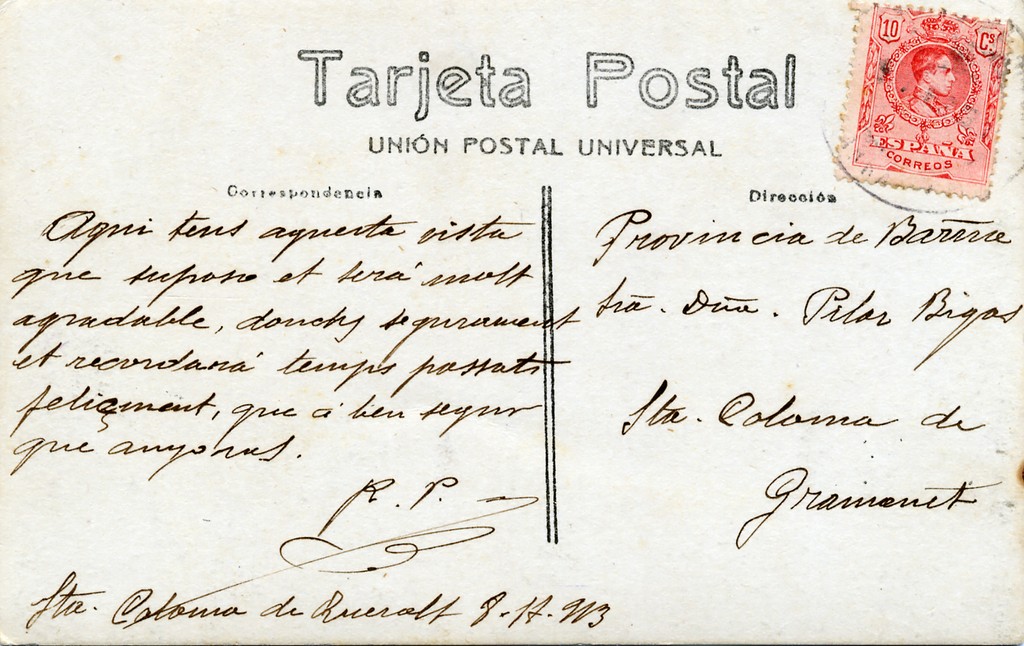 Tarjeta Postal
UNIÓN POSTAL UNIVERSAL
10 Cs.
ESPAÑA
CORREOS
Correspondencia
Aqui tens aquesta vista
que suposo et será molt
agradable, donchs segurament
et recordará temps passats
feliçment, que á ben segur
que anyoras.
R. P.
Sta. Coloma de Queralt 8-
Dirección
Provincia de Barna
Sra. Dña. Pilar Bigas
Sta. Coloma de
Gramanet